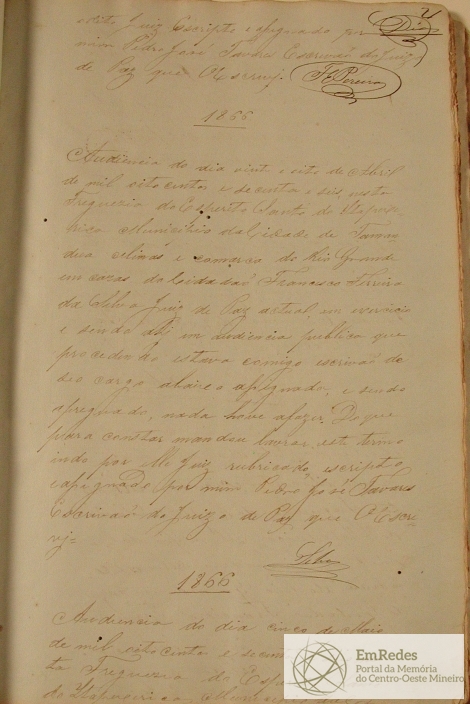 edito Juiz Escripto e apignado por
mim Pedro José Tavares Escrivaõ do Juizo
de Paz que o Escrevj.
1866
Audiencia do dia vinte oito de Abril
de mil oito centos e secenta e seis, nesta
Freguesia do Espirito Santo do Itapece-
rica Municipio da Cidade de Taman
dua e comarca do Rio Grande
em cazas do Cidadaõ Francisco Ferreira
da Silva Juiz de Paz actual em exercicio
e sendo ahj em audiencia publica que
procedendo estava comigo escrivaõ de
seo cargo abaixo apignado, e sendo
apregoado, nada houve afazer. Do que
para constar mandou lavrar este termo
indo por elle Juiz rubricado, escripto
e apignado por mim Pedro José Tavares
Escrivaõ do Juizo de Paz que o Escre
vj=
Silva
1866
Audiencia do dia cinco de Maio
de mil oito centos e secen
ta Freguesia do Esp
do Itapecerica Municipio
EmRedes
Portal da Memória
do Centro-Oeste Mineiro